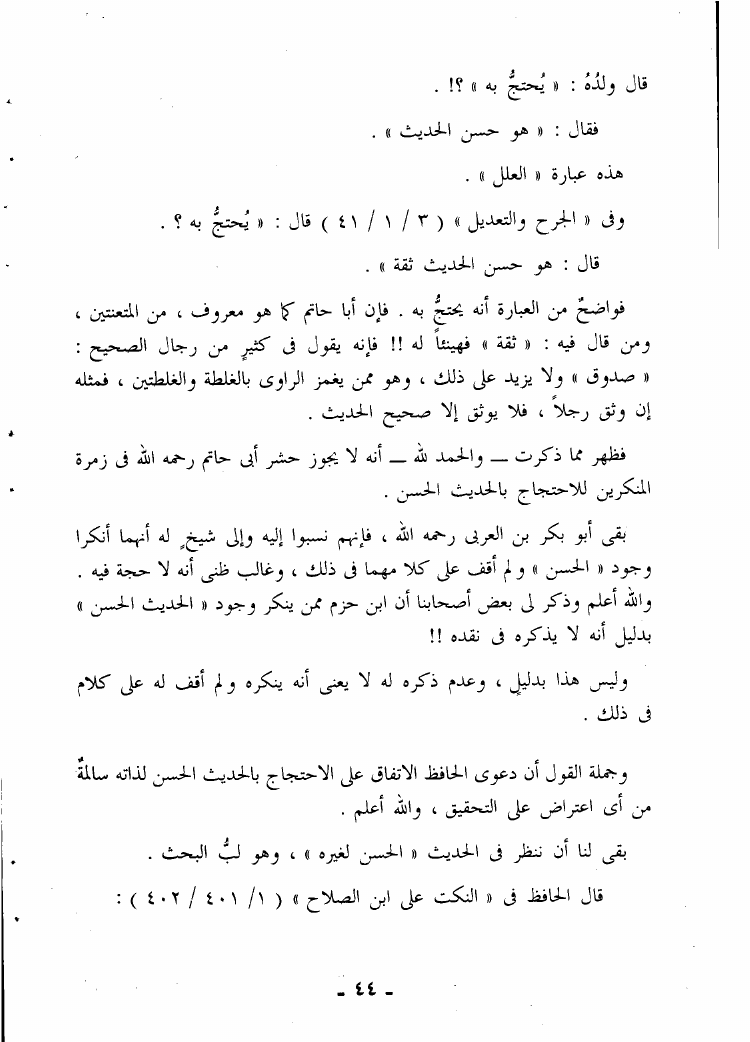 قال ولدُهُ : « يُحتجُّ به » ؟! .
فقال : « هو حسن الحديث » .
هذه عبارة « العلل » .
وفى « الجرح والتعديل » ( ٣ / ١ / ٤١ ) قال : « يُحتجُّ به ؟ .
قال : هو حسن الحديث ثقة » .
فواضحٌ من العبارة أنه يحتجُّ به . فإن أبا حاتم كما هو معروف ، من المتعنتين ،
ومن قال فيه : « ثقة » فهنيئاً له !! فإنه يقول فى كثيرٍ من رجال الصحيح :
« صدوق » ولا يزيد على ذلك ، وهو ممن يغمز الراوى بالغلطة والغلطتين ، فمثله
إن وثق رجلاً ، فلا يوثق إلا صحيح الحديث .
فظهر مما ذكرت ــ والحمد لله ــ أنه لا يجوز حشر أبى حاتم رحمه الله فى زمرة
المنكرين للاحتجاج بالحديث الحسن .
بقى أبو بكر بن العربى رحمه الله ، فإنهم نسبوا إليه وإلى شيخٍ له أنهما أنكرا
وجود « الحسن » ولم أقف على كلا مهما فى ذلك ، وغالب ظنى أنه لا حجة فيه .
والله أعلم وذكر لى بعض أصحابنا أن ابن حزم ممن ينكر وجود « الحديث الحسن »
بدليل أنه لا يذكره فى نقده !!
وليس هذا بدليلٍ ، وعدم ذكره له لا يعنى أنه ينكره ولم أقف له على كلام
فى ذلك .
وجملة القول أن دعوى الحافظ الاتفاق على الاحتجاج بالحديث الحسن لذاته سالمةٌ
من أى اعتراض على التحقيق ، والله أعلم .
بقى لنا أن ننظر فى الحديث « الحسن لغيره » ، وهو لبُّ البحث .
قال الحافظ فى « النكت على ابن الصلاح » ( ١/ ٤٠١ / ٤٠٢ ) :
ـ ٤٤ ـ